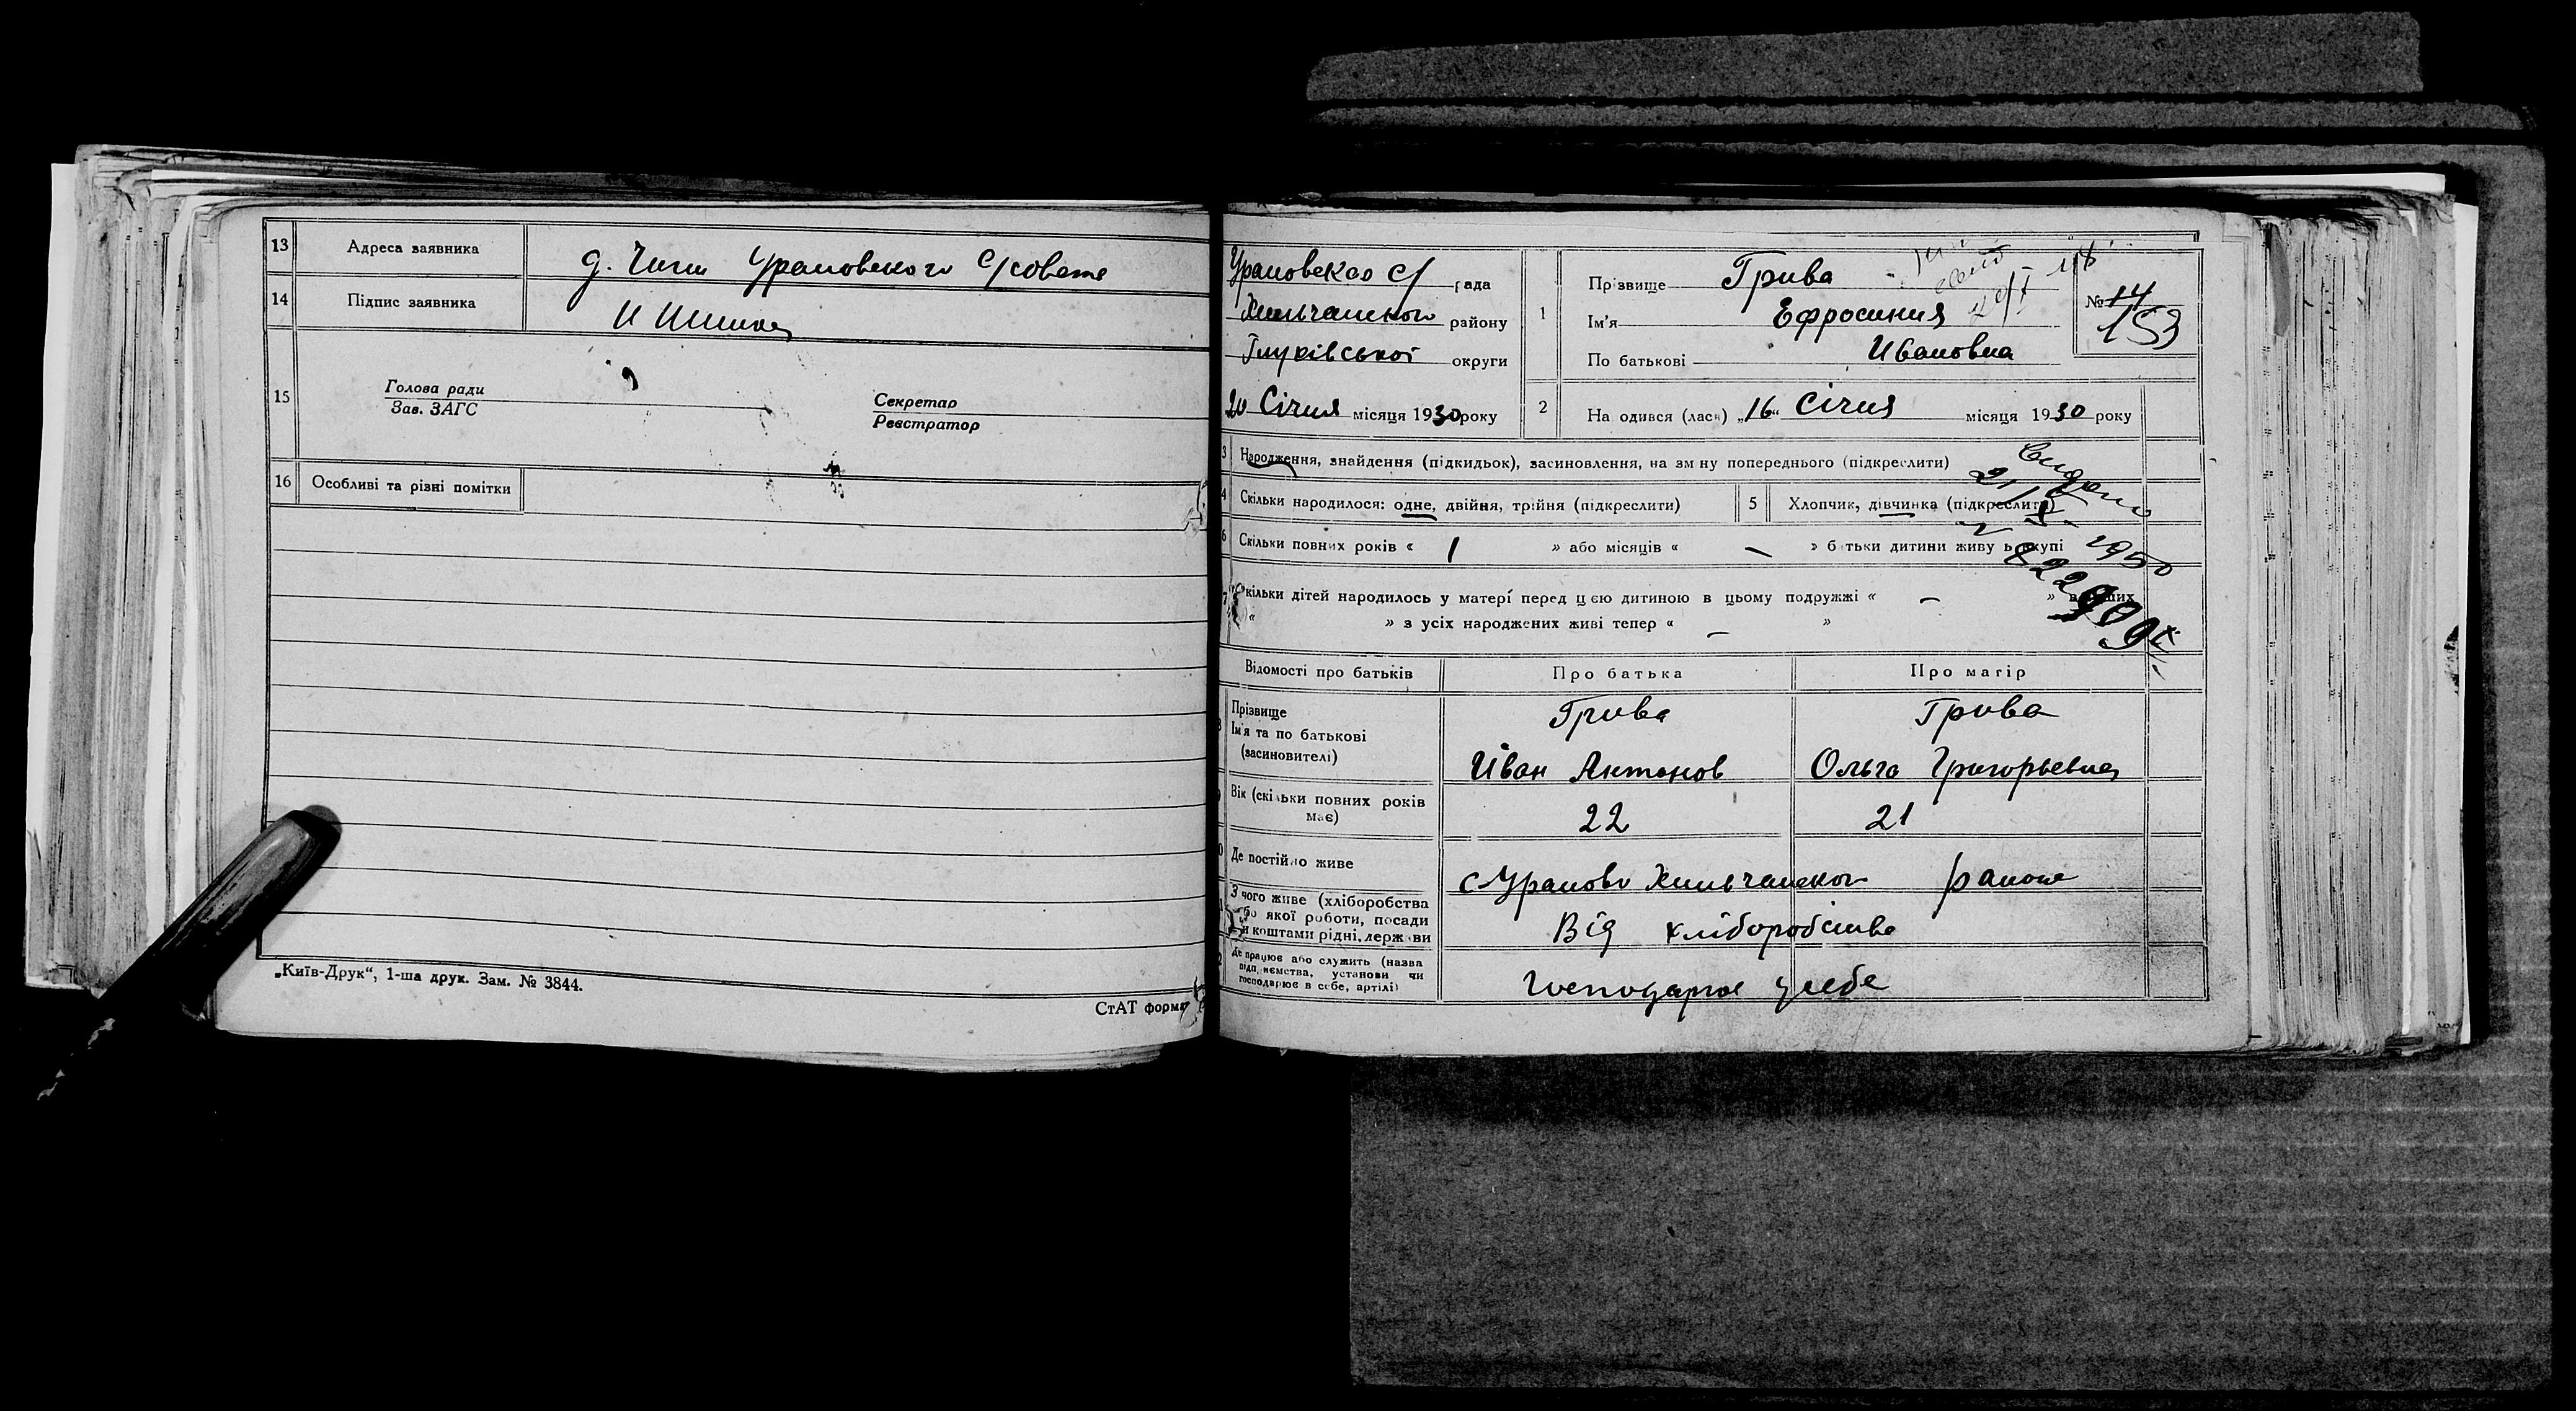 13 Адреса заявника д. Чигин Урановского с/совета
14 Підпис заявника И Шишк
15 Голова ради
Зав. ЗАГС
Секретар
Реєстратор
16 Особливі та різні помітки
„Київ-Друк“, 1-ша друк. Зам. № 3844.
СтАТ форма
Урановскао с/ рада
Хильчанского району
Глухівської округи
20 Січня місяця 1930 року
1 Прізвище Грива
Ім'я Ефросиния
По батькові Ивановна
№ 14
153
2 На одився (лася) „16“ Січня місяця 1930 року
3 Народження, знайдення (підкидьок), засиновлення, на зм ну попереднього (підкреслити)
4 Скільки народилося: одне, двійня, трійня (підкреслити) 5 Хлопчик, дівчинка (підкреслити)
6 Скільки повних років « 1 » або місяців « — » б тьки дитини живу ь вкупі
7 кільки дітей народилось у матері перед ц єю дитиною в цьому подружжі « — »
« » з усіх народжених живі тепер « — »
Видано
21/X
1950
Відомості про батьків Про батька Про матір
Прізвище Грива Грива
Ім'я та по батькові
(засиновителі) Иван Антонов Ольга Григорьевна
Вік (скільки повних років
має) 22 21
Де постійно живе сУраново Хильчанског района
З чого живе (хліборобства
бо якої роботи, посади
и коштами рідні, держ ви Від хліборобства
Де працює або служить (назва
підп иємства, установи чи
господарює в себе, артілі) Господарює у себе